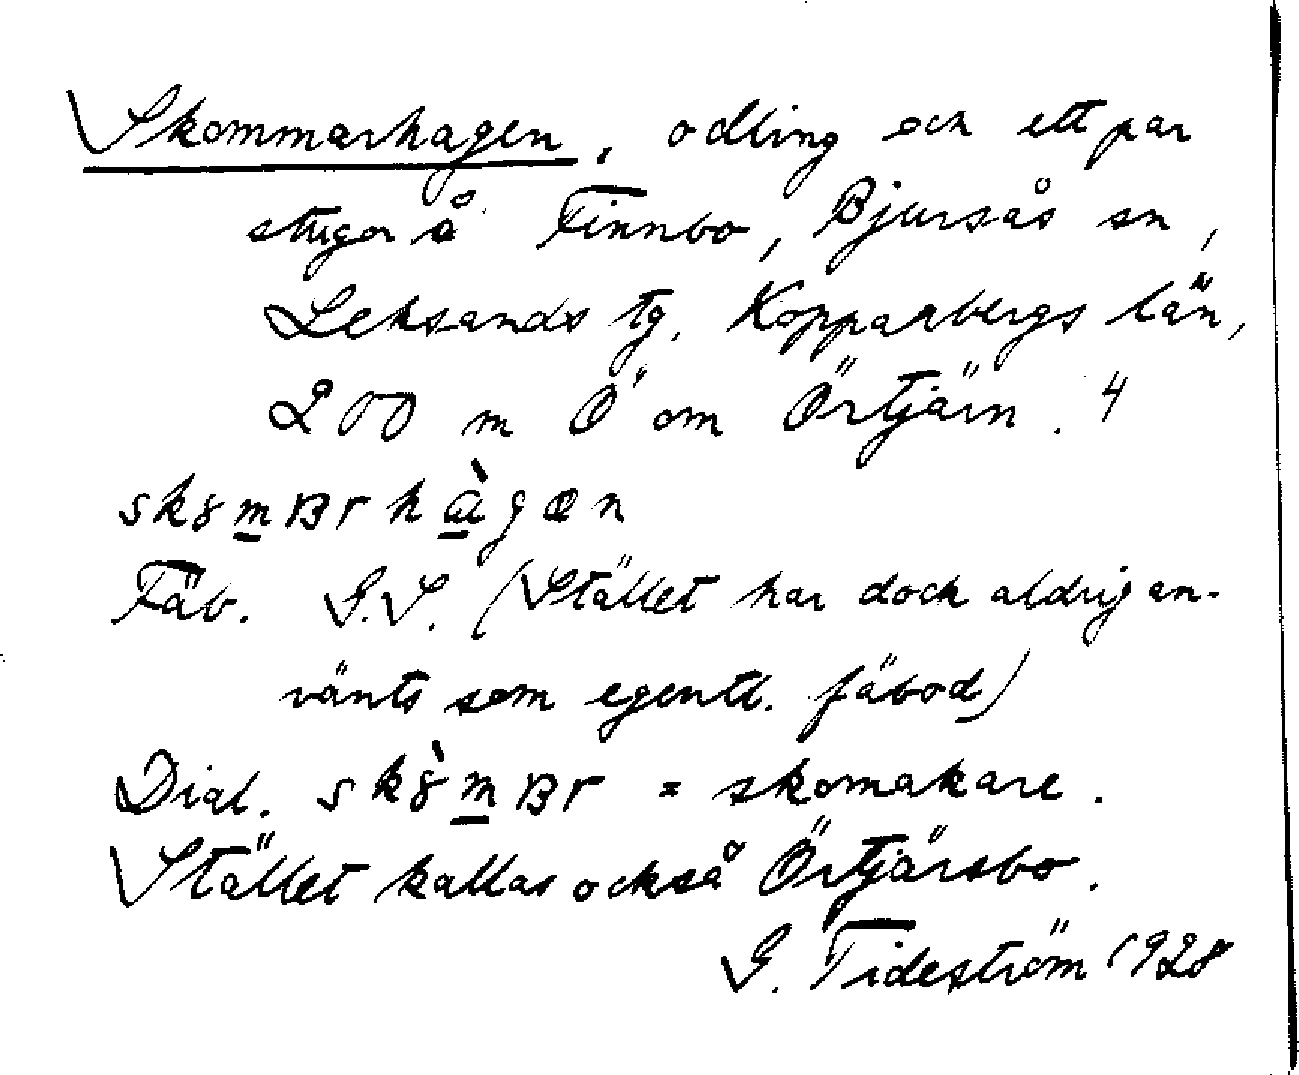 Skommarhagen, odling och ett par
stugor å Finnbo, Bjursås sn,
Leksands tg. Kopparbergs län,
200 m Ö om Örtjärn. 4
sk8mBrhàgən
Fäb. G.S. (Stället har dock aldrig an-
vänts som egentl. fäbod)
Dial. sk8̀mBr = skomakare.
Stället kallas också Örtjärsbo.
G. Tideström 1928